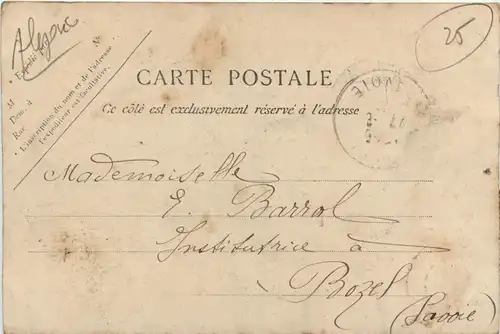 25
CARTE POSTALE
Ce côté est exclusivement réservé à l'adresse
M
Dem. à
Rue
L'inscription du nom et de l'adresse
de l'expéditeur est facultative.
Mademoiselle
E. Barrol
Institutrice à
Bozel
(Savoie)